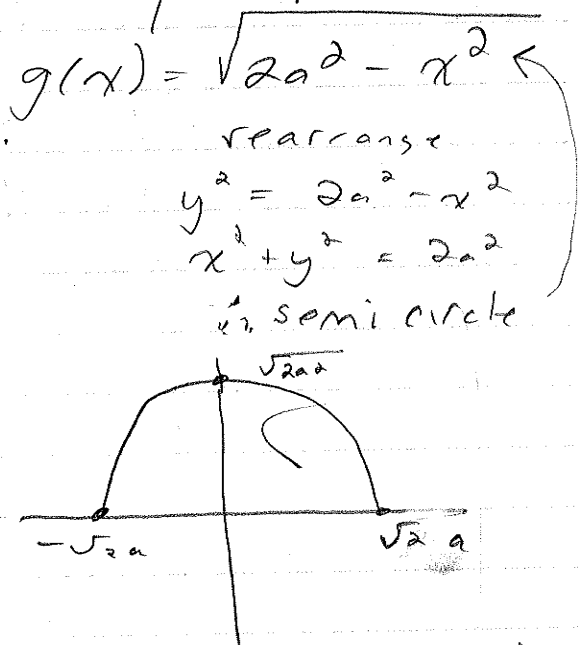 g(x) = √(2a² - x²)
rearrange
y² = 2a² - x²
x² + y² = 2a²
semi circle
√2a²
-√2 a
√2 a